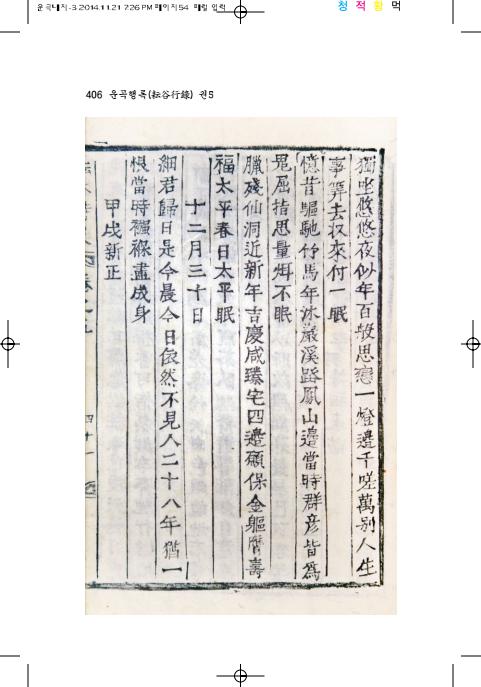 운곡내지-3 2014.11.21 7:26 PM 페이지54 매킬 입력
청 적 황 먹
406 운곡행록(耘谷行錄) 권5
獨坐悠悠夜似年百般思戀一燈邊千嗟萬別人生
事算去収來付一眠
憶昔驅馳竹馬年氷巖溪路鳳山邊當時群彦皆爲
鬼屈指思量烱不眠
臘殘仙洞近新年吉慶咸臻宅四邊願保金軀膺壽
福太平春日太平眠
十二月三十日
細君歸日是今晨今日依然不見人二十八年猶一
恨當時襁褓盡成身
甲戌新正
卷之五
四十一